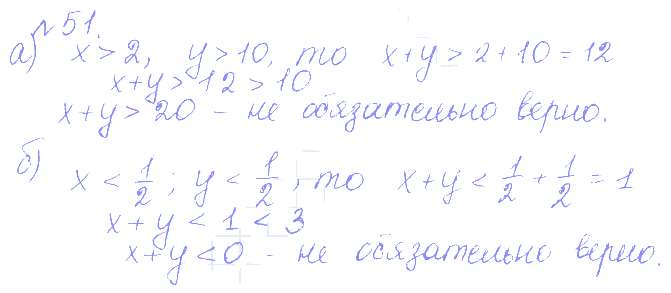 №51.
а) x > 2, y > 10, то x+y > 2+10 = 12
x+y > 12 > 10
x+y > 20 - не обязательно верно.
б) x < 1/2; y < 1/2, то x+y < 1/2 + 1/2 = 1
x+y < 1 < 3
x+y < 0 - не обязательно верно.